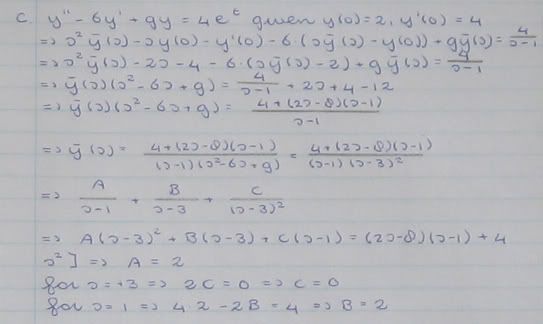 c. y'' - 6y' + 9y = 4e^t given y(0) = 2, y'(0) = 4
=> s² ȳ(s) - s y(0) - y'(0) - 6·(s ȳ(s) - y(0)) + 9ȳ(s) = 4/(s-1)
=> s² ȳ(s) - 2s - 4 - 6·(s ȳ(s) - 2) + 9 ȳ(s) = 4/(s-1)
=> ȳ(s)(s² - 6s + 9) = 4/(s-1) + 2s + 4 - 12
=> ȳ(s)(s² - 6s + 9) = (4 + (2s-8)(s-1))/(s-1)
=> ȳ(s) = (4 + (2s-8)(s-1))/((s-1)(s²-6s+9)) = (4 + (2s-8)(s-1))/((s-1)(s-3)²)
=> A/(s-1) + B/(s-3) + C/(s-3)²
=> A(s-3)² + B(s-3) + C(s-1) = (2s-8)(s-1) + 4
s² ] => A = 2
for s = +3 => 2C = 0 => C = 0
for s = 1 => 4·2 - 2B = 4 => B = 2